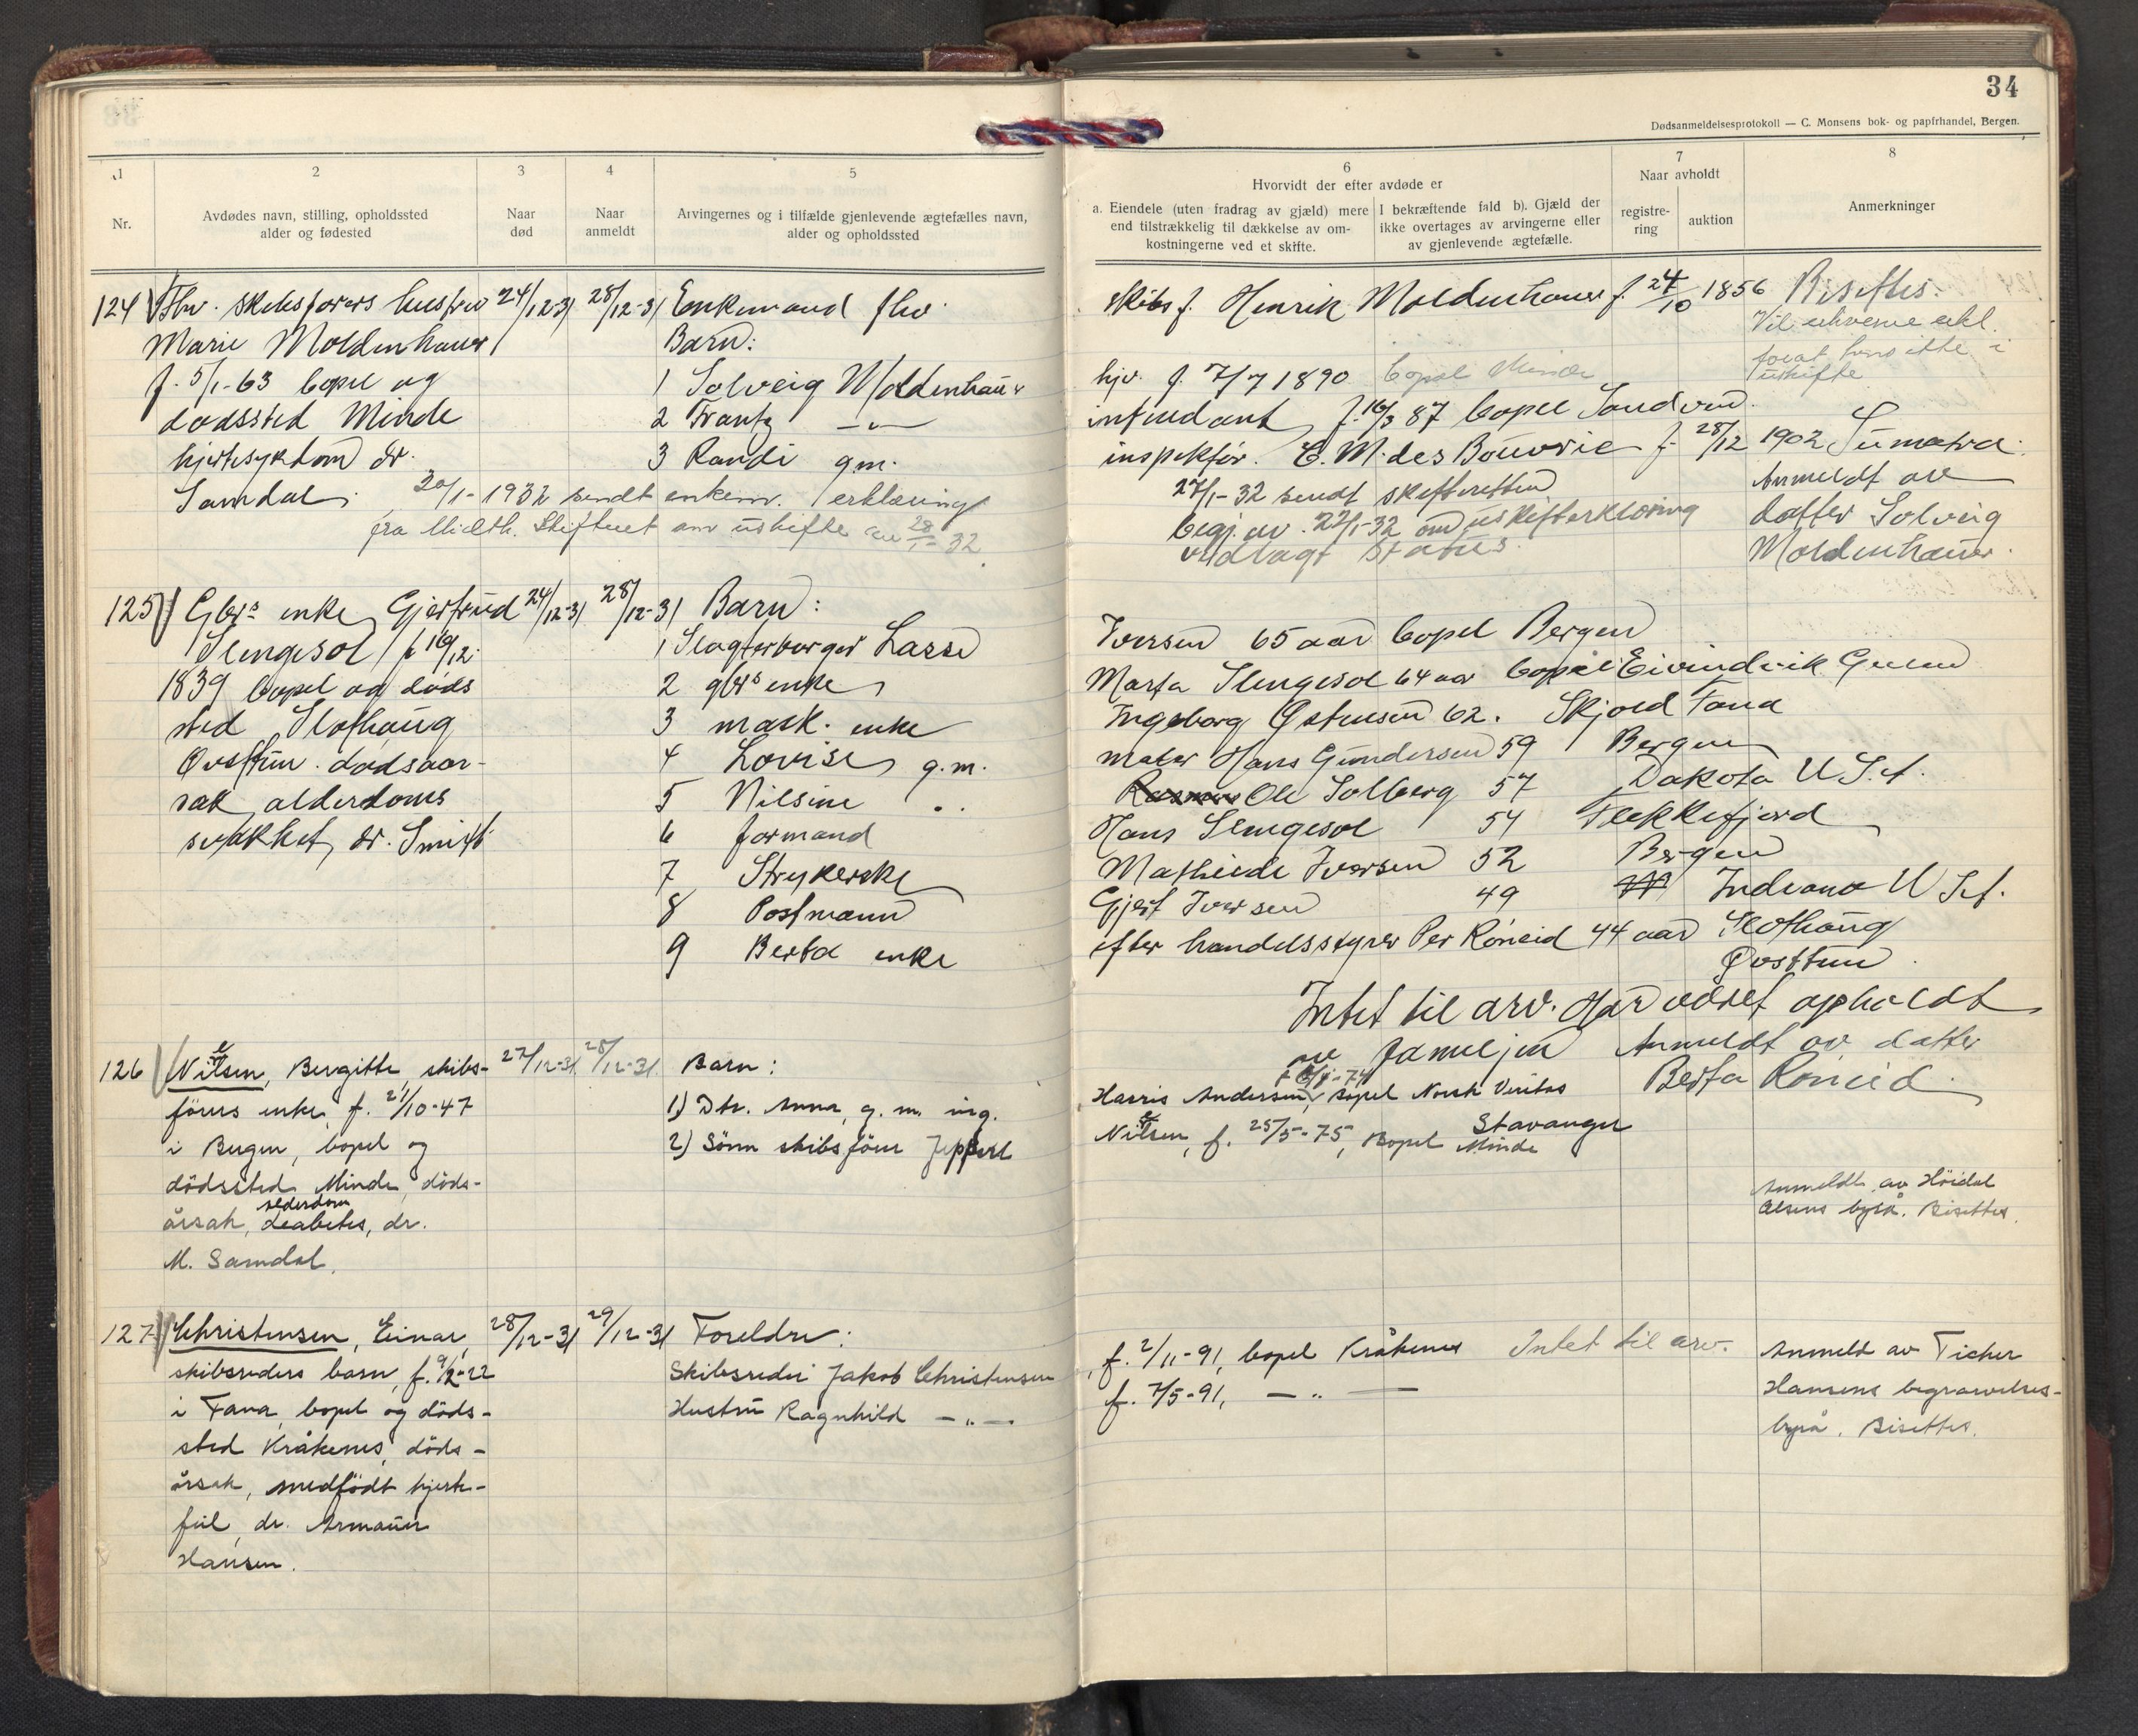 34
Dødsanmeldelsesprotokoll — C. Monsens bok- og papirhandel, Bergen.
1 2 3 4 5 6 7 8
Nr.
Avdødes navn, stilling, opholdssted
alder og fødested
Naar
død
Naar
anmeldt
Arvingernes og i tilfælde gjenlevende ægtefælles navn,
alder og opholdssted
Hvorvidt der efter avdøde er
a. Eiendele (uten fradrag av gjæld) mere
end tilstrækkelig til dækkelse av om-
kostningerne ved et skifte.
I bekræftende fald b). Gjæld der
ikke overtages av arvingerne eller
av gjenlevende ægtefælle.
Naar avholdt
registre-
ring
auktion
Anmerkninger
124 Fhv. skibsførers hustru 24/12-31 28/12-31 Enkemand fhv. skibsf. Henrik Moldenhauer f. 24/10 1856 Bisettes.
Marie Moldenhauer Barn:
f. 5/1-63 bopel og 1 Solveig Moldenhauer hjv. f. 7/7 1890 bopel Minde
dødssted Minde 2 Frantz —"— intendant f. 16/3 87 bopel Sandvin.
hjertesygdom dr. 3 Randi gm. inspektør. E. M. des Bouvrie f. 28/12 1902 Sumatra.
Samdal. 30/1-1932 sendt enkem. erklæring
fra Midth. Skifteret om uskifte av 28/1-32.
27/1-32 sendt skifteretten
begj. av 22/1-32 om uskifteerklæring
vedlagt status.
Vil erhverve erkl.
forat hans sitte i
uskifte
Anmeldt av
datter Solveig
Moldenhauer.
125 Gbrs enke Gjertrud 24/12-31 28/12-31 Barn:
Slengesol f. 16/12 1 Slagterborger Lasse Iversen 65 aar bopel Bergen
1839 bopel og døds 2 gbrs enke Marta Slengesol 64 aar bopel Eivindvik Gulen
sted Slothaug 3 mask. enke Ingeborg Østensen 62. Skjold Fana
Øvsttun. dødsaar- 4 Lovise g.m. maler Hans Gundersen 59 Bergen
sak alderdoms 5 Nilsine " Ole Solberg 57 Dakota U.S.A.
svakhet, dr. Smitt 6 formand Hans Slengesol 54 Flekkefjord
7 Strykerske Mathilde Iversen 52 Bergen
8 Postmann Gjert Iversen 49 Indiana U.S.A.
9 Berta enke efter handelsstyrer Per Röneid 44 aar Slothaug
Øvsttun.
Intet til arv. Har været opholdt
av familjen Anmeldt av datter
Berta Röneid.
126 Nilsen, Bergitte, skibs- 27/12-31 28/12-31 Barn:
förers enke, f. 21/10-47 1) Dtr. Anna, g. m. ing. Harris Andersen, bopel Norsk Veritas
Stavanger
i Bergen, bopel og 2) Sönn skibsförer Jeppert Nilsen, f. 25/5-75, Bopel Minde
dödssted Minde, döds-
alderdom
årsak, diabetes, dr.
M. Samdal.
Anmeldt av Höidal
Olsens byrå. Bisettes.
127 Christensen, Einar, 28/12-31 29/12-31 Foreldre:
skibsreders barn, f. 9/2-22 Skibsreder Jakob Christensen f. 2/11-91, bopel Kråkenes Intet til arv.
i Fana, bopel og döds- Hustru Ragnhild —"— f. 7/5-91, —"—
sted Kråkenes, döds-
årsak, medfödt hjerte-
feil, dr. Armauer
Hansen.
Anmeldt av Ticher
Hansens begravelses-
byrå. Bisettes.